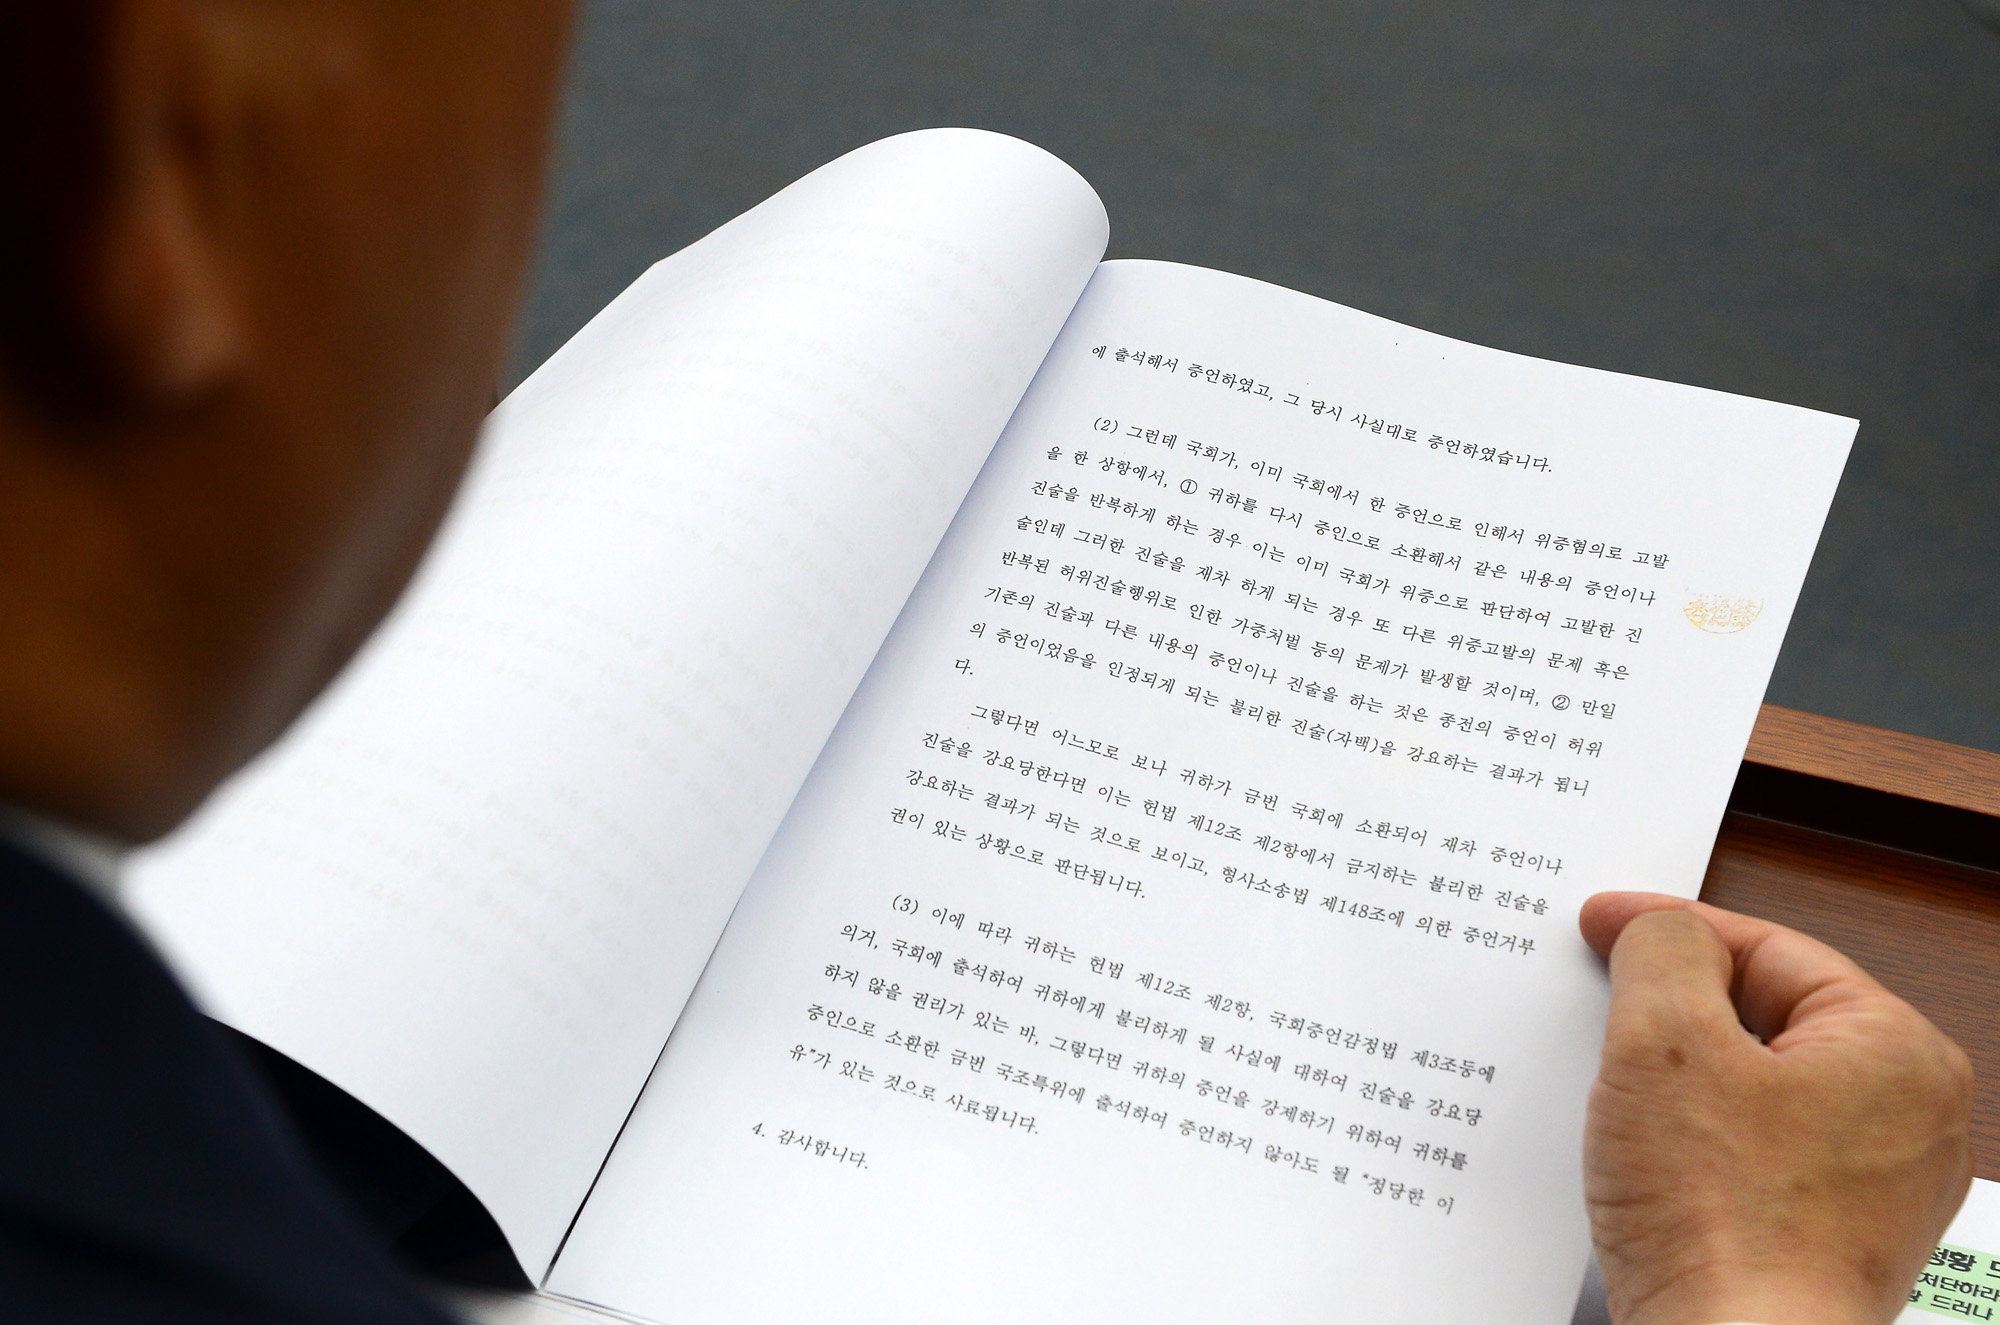 에 출석해서 증언하였고, 그 당시 사실대로 증언하였습니다.
(2) 그런데 국회가, 이미 국회에서 한 증언으로 인해서 위증혐의로 고발
을 한 상항에서, ① 귀하를 다시 증인으로 소환해서 같은 내용의 증언이나
진술을 반복하게 하는 경우 이는 이미 국회가 위증으로 판단하여 고발한 진
술인데 그러한 진술을 재차 하게 되는 경우 또 다른 위증고발의 문제 혹은
반복된 허위진술행위로 인한 가중처벌 등의 문제가 발생할 것이며, ② 만일
기존의 진술과 다른 내용의 증언이나 진술을 하는 것은 종전의 증언이 허위
의 증언이었음을 인정되게 되는 불리한 진술(자백)을 강요하는 결과가 됩니
다.
그렇다면 어느모로 보나 귀하가 금번 국회에 소환되어 재차 증언이나
진술을 강요당한다면 이는 헌법 제12조 제2항에서 금지하는 불리한 진술을
강요하는 결과가 되는 것으로 보이고, 형사소송법 제148조에 의한 증언거부
권이 있는 상황으로 판단됩니다.
(3) 이에 따라 귀하는 헌법 제12조 제2항, 국회증언감정법 제3조등에
의거, 국회에 출석하여 귀하에게 불리하게 될 사실에 대하여 진술을 강요당
하지 않을 권리가 있는 바, 그렇다면 귀하의 증언을 강제하기 위하여 귀하를
증인으로 소환한 금번 국조특위에 출석하여 증언하지 않아도 될 “정당한 이
유”가 있는 것으로 사료됩니다.
4. 감사합니다.
정황
처단하라
드러나